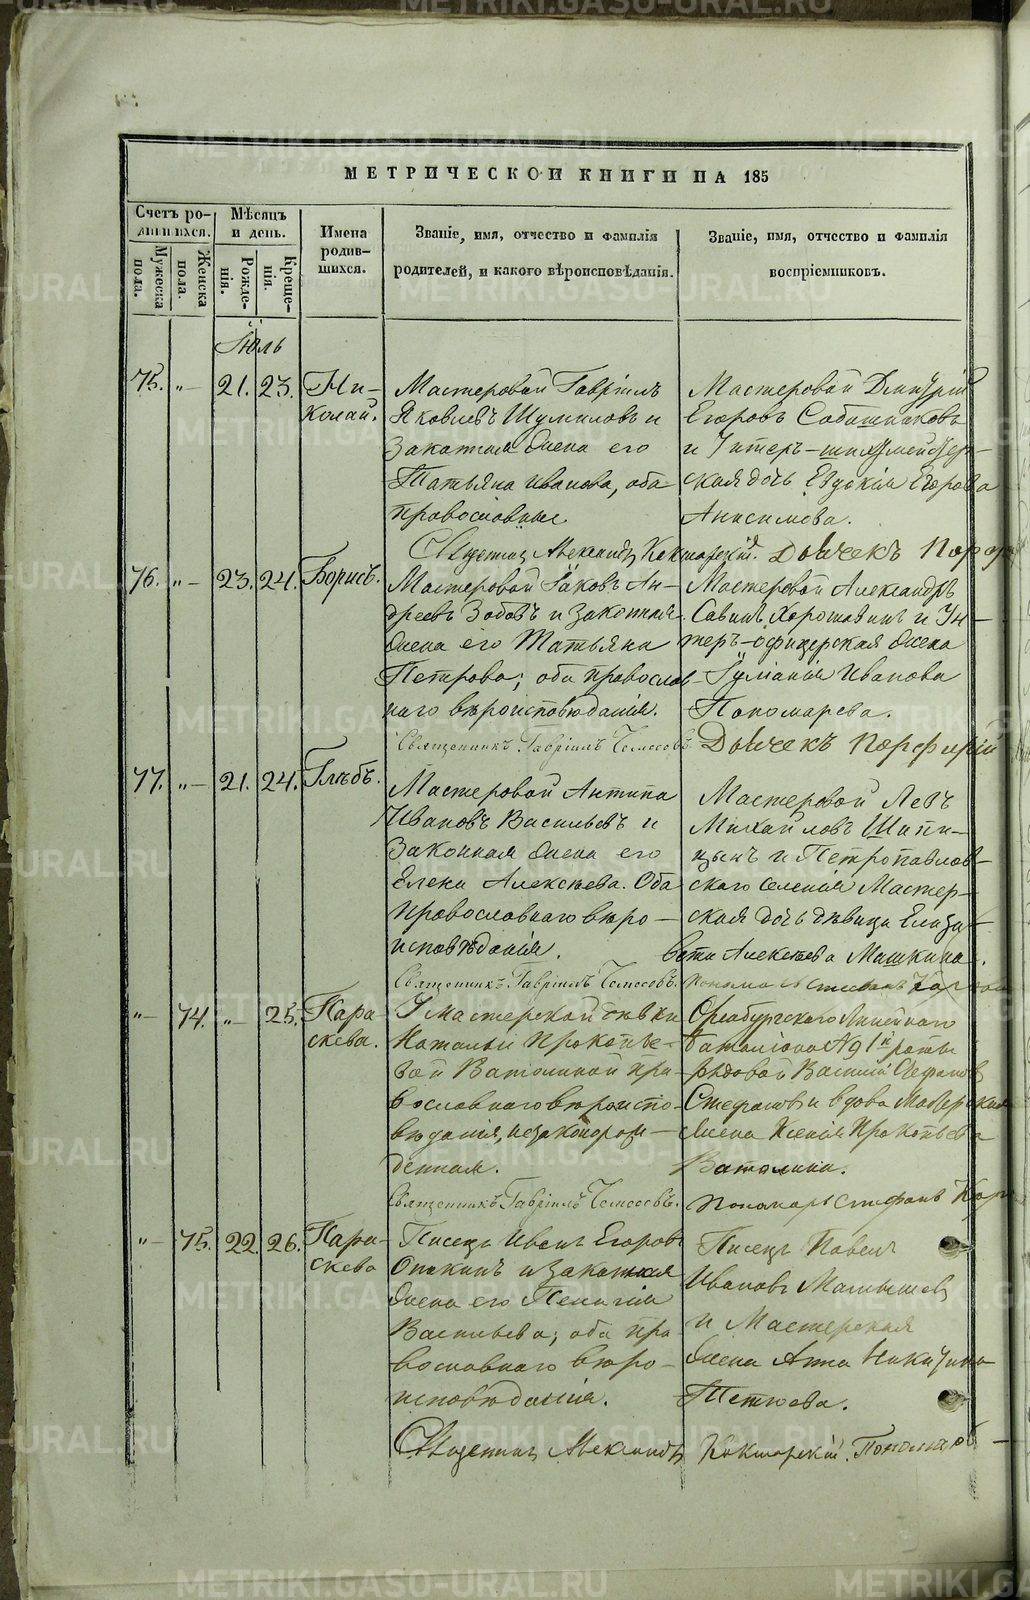 МЕТРИЧЕСКОЙ КНИГИ НА 185
Счетъ ро-
дившихся.
Мѣсяцъ
и день.
Имена
родив-
шихся.
Званіе, имя, отчество и фамилія
родителей, и какого вѣроисповѣданія.
Званіе, имя, отчество и фамилія
воспріемниковъ.
Мужеска
пола.
Женска
пола.
Рожде-
нія.
Креще-
нія.
Іюль
75. „— 21. 23. Ни-
колай.
Мастеровой Гавріилъ
Яковлевъ Шумиловъ и
Законная жена его
Татьяна Иванова, оба
православные
Мастеровой Димитрій
Егоровъ Собашниковъ
и Унтеръ-шихтмейстер-
ская дочь Евдокія Егорова
Анисимова.
Священникъ Александръ Кокшарскій. Дьячекъ Порф
76. „— 23. 24. Борисъ.
Мастеровой Іаковъ Ан-
дреевъ Зобовъ и законная
жена его Татьяна
Петрова; оба православ
наго вѣроисповѣданія.
Мастеровой Александръ
Савинъ Хорошавинъ и Ун-
теръ-офицерская жена
Іуліанія Иванова
Пономарева.
Священникъ Гавріилъ Дьячекъ Порфирій
77. „— 21. 24. Глѣбъ.
Мастеровой Антипа
Ивановъ Васильевъ и
Законная жена его
Елена Алексѣева. Оба
православнаго вѣро-
исповѣданія.
Мастеровой Левъ
Михайловъ Шипи-
цынъ и Петропавлов-
скаго селенія Мастер-
ская дочь дѣвица Елиза-
вета Алексѣева Машкина.
Священникъ Гавріилъ
„— 74. „— 25. Пара-
скева.
У мастерской дѣвки
Натальи Прокопье-
вой Ватолиной пра-
вославнаго вѣроиспо-
вѣданія, незаконорож-
денная.
Оренбургскаго Линейнаго
баталіона №9 1й роты
рядовой Василій Стефановъ
Стефановъ и вдова Мастерская
жена Ксенія Прокопьева
Ватолина.
Священникъ Гавріилъ
Пономарь Стефанъ
„— 75. 22. 26. Пара-
скева
Писецъ Иванъ Егоровъ
Опокинъ и законная
жена его Пелагія
Васильева; оба пра-
вославнаго вѣро-
исповѣданія.
Писецъ Павелъ
Ивановъ Малышевъ
и Мастерская
жена Анна Никитина
Тетюева.
Священникъ Александръ Кокшарскій. Пономарь
METRIKI.GASO-URAL.RU